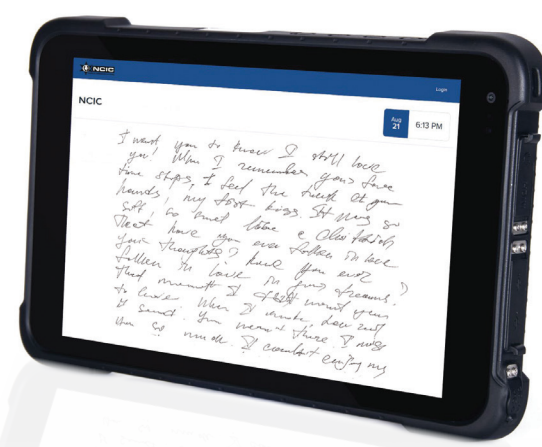 NCIC
Login
NCIC
Aug
21
6:13 PM
I want you to know I still love
you! When I remember your face
time stops, to feel the touch of your
hands, my first kiss. It was so
soft, so
have you ever fallen in love
your thoughts? have you ever
fallen in love in your dreams?
That moment I didn't want you
to leave. When I awoke, dear
You weren't there. I miss
you so much. I couldn't enjoy my